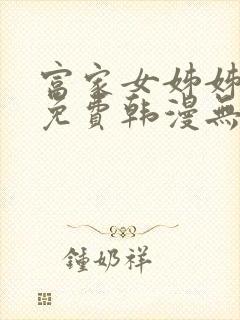 富家女姊姊
免費韩漫無
鍾奶祥